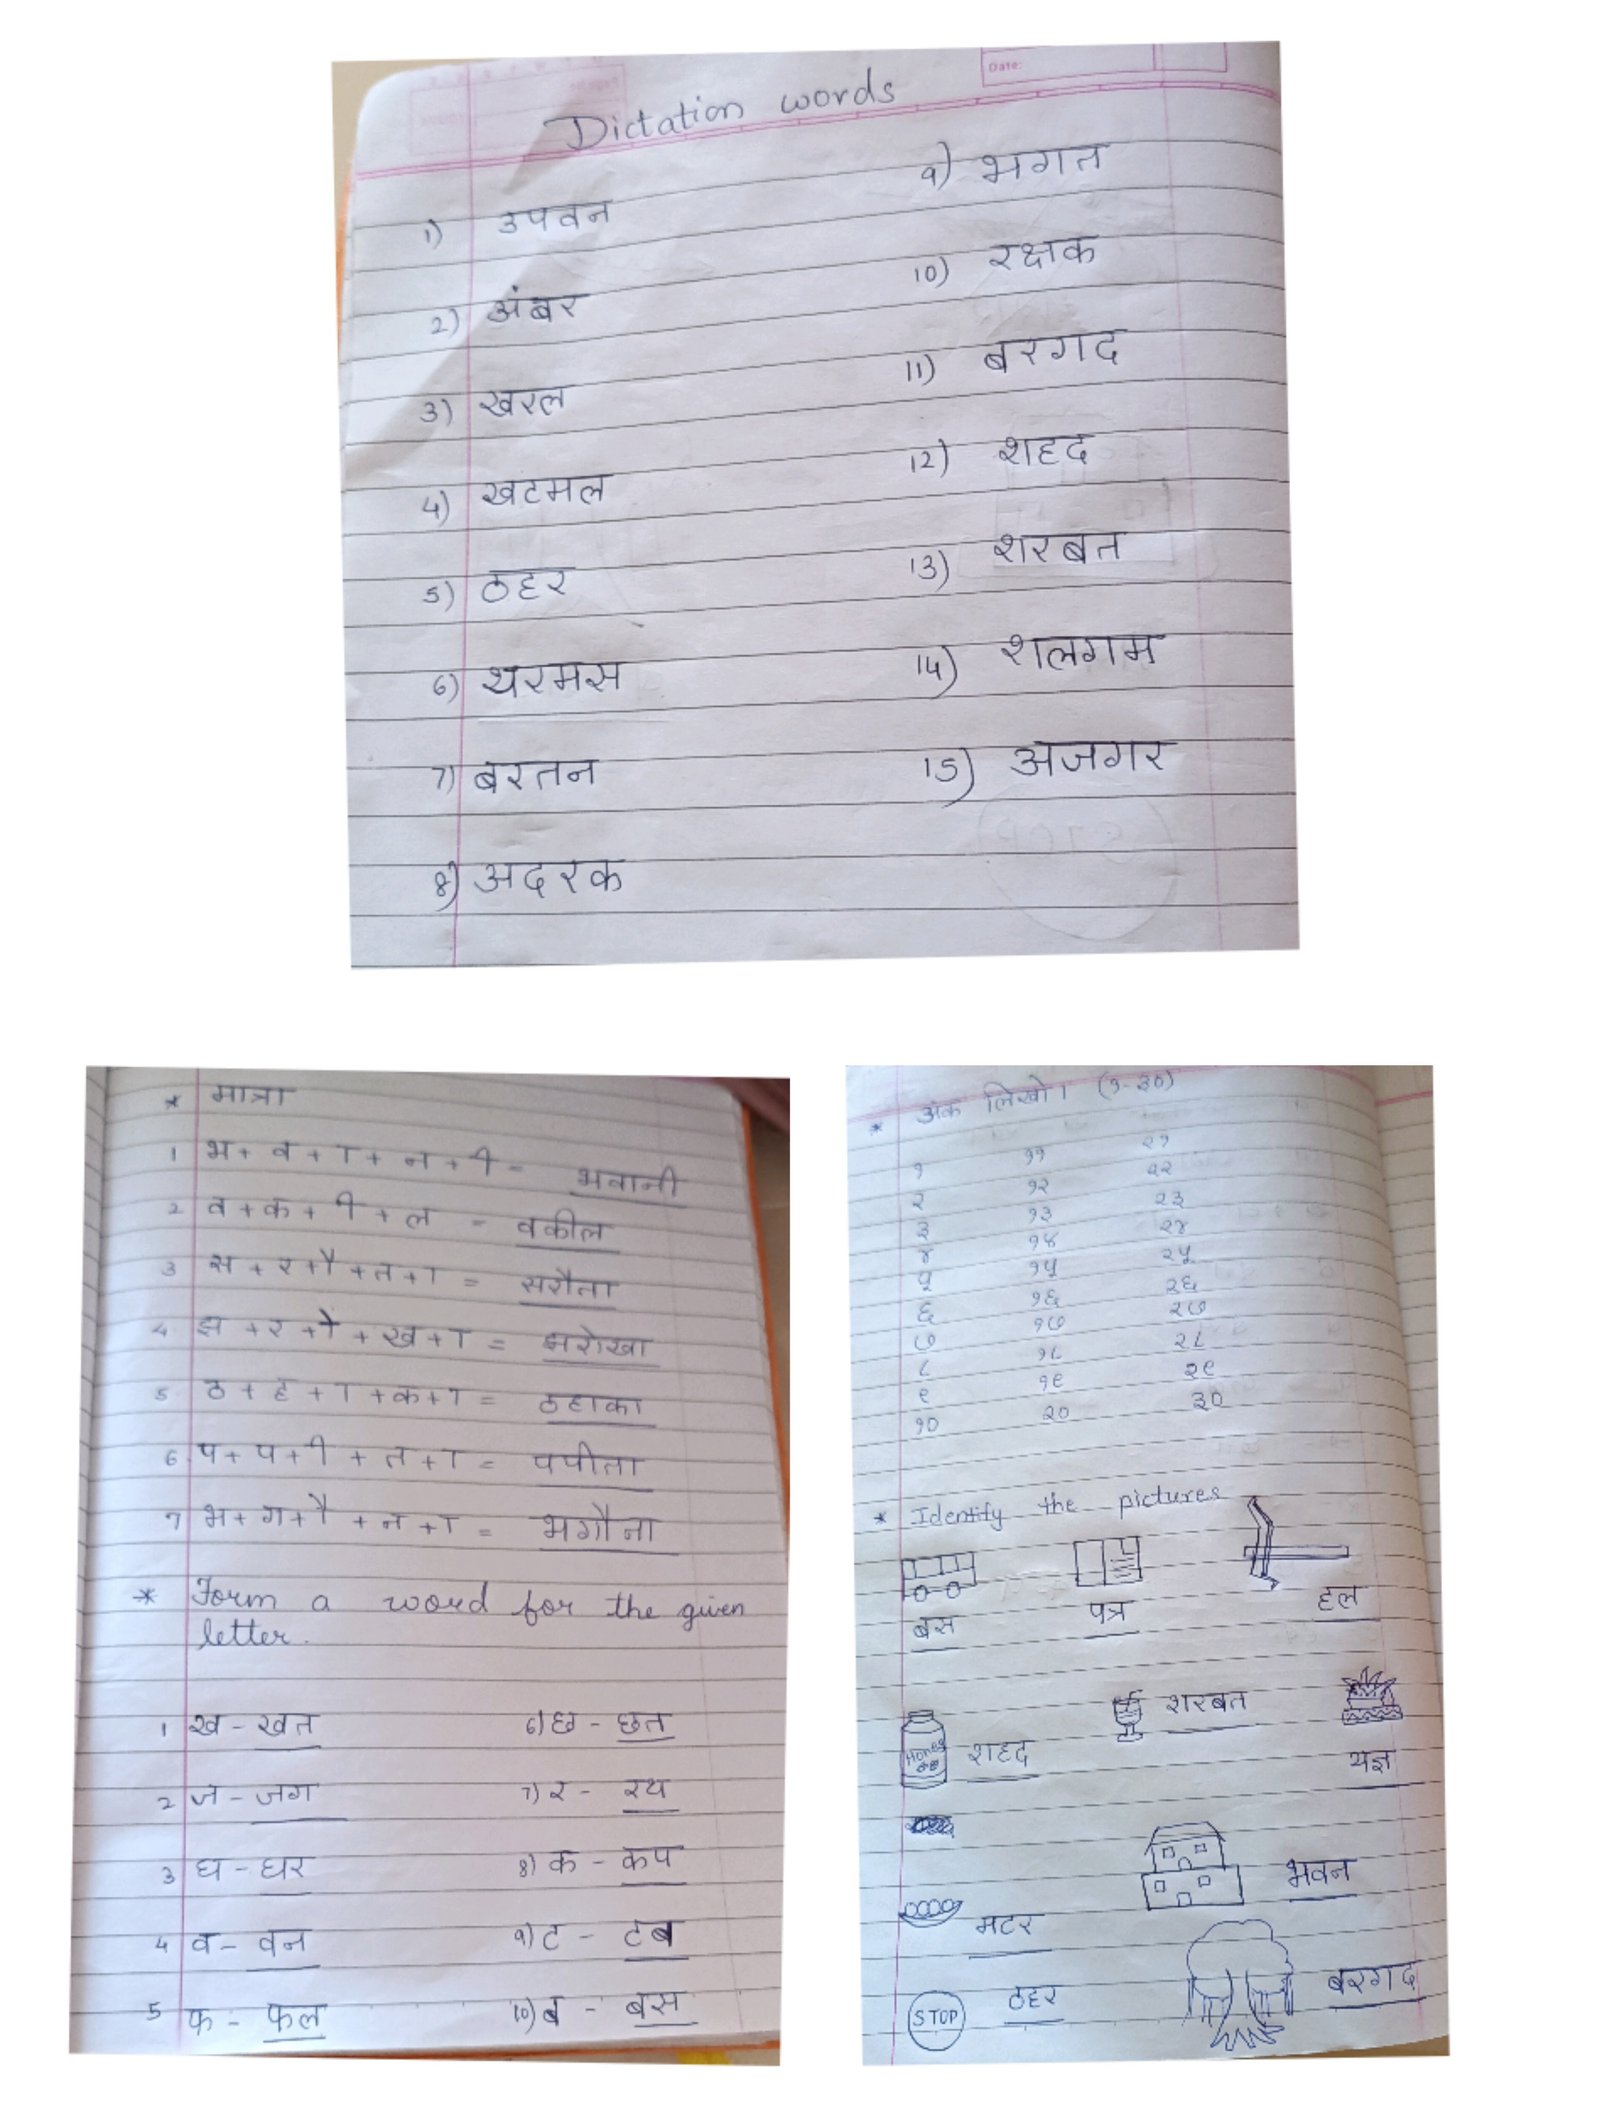 Date:
Dictation words
1) उपवन
2) अंबर
3) खरल
4) खटमल
5) ठहर
6) थरमस
7) बरतन
8) अदरक
9) भगत
10) रक्षक
11) बरगद
12) शहद
13) शरबत
14) शलगम
15) अजगर
* मात्रा
1 भ + व + ा + न + ी = भवानी
2 व + क + ी + ल = वकील
3 स + र + ौ + त + ा = सरौता
4 झ + र + ो + ख + ा = झरोखा
5 ठ + ह + ा + क + ा = ठहाका
6 प + प + ी + त + ा = पपीता
7 भ + ग + ौ + न + ा = भगौना
* Form a word for the given
letter.
1 ख - खत
2 ज - जग
3 घ - घर
4 व - वन
5 फ - फल
6) छ - छत
7) र - रथ
8) क - कप
9) ट - टब
10) ब - बस
* अंक लिखो। (१-३०)
१ ११ २१
२ १२ २२
३ १३ २३
४ १४ २४
५ १५ २५
६ १६ २६
७ १७ २७
८ १८ २८
९ १९ २९
१० २० ३०
* Identify the pictures
बस पत्र हल
Honey शहद शरबत यज्ञ
मटर भवन
STOP ठहर बरगद